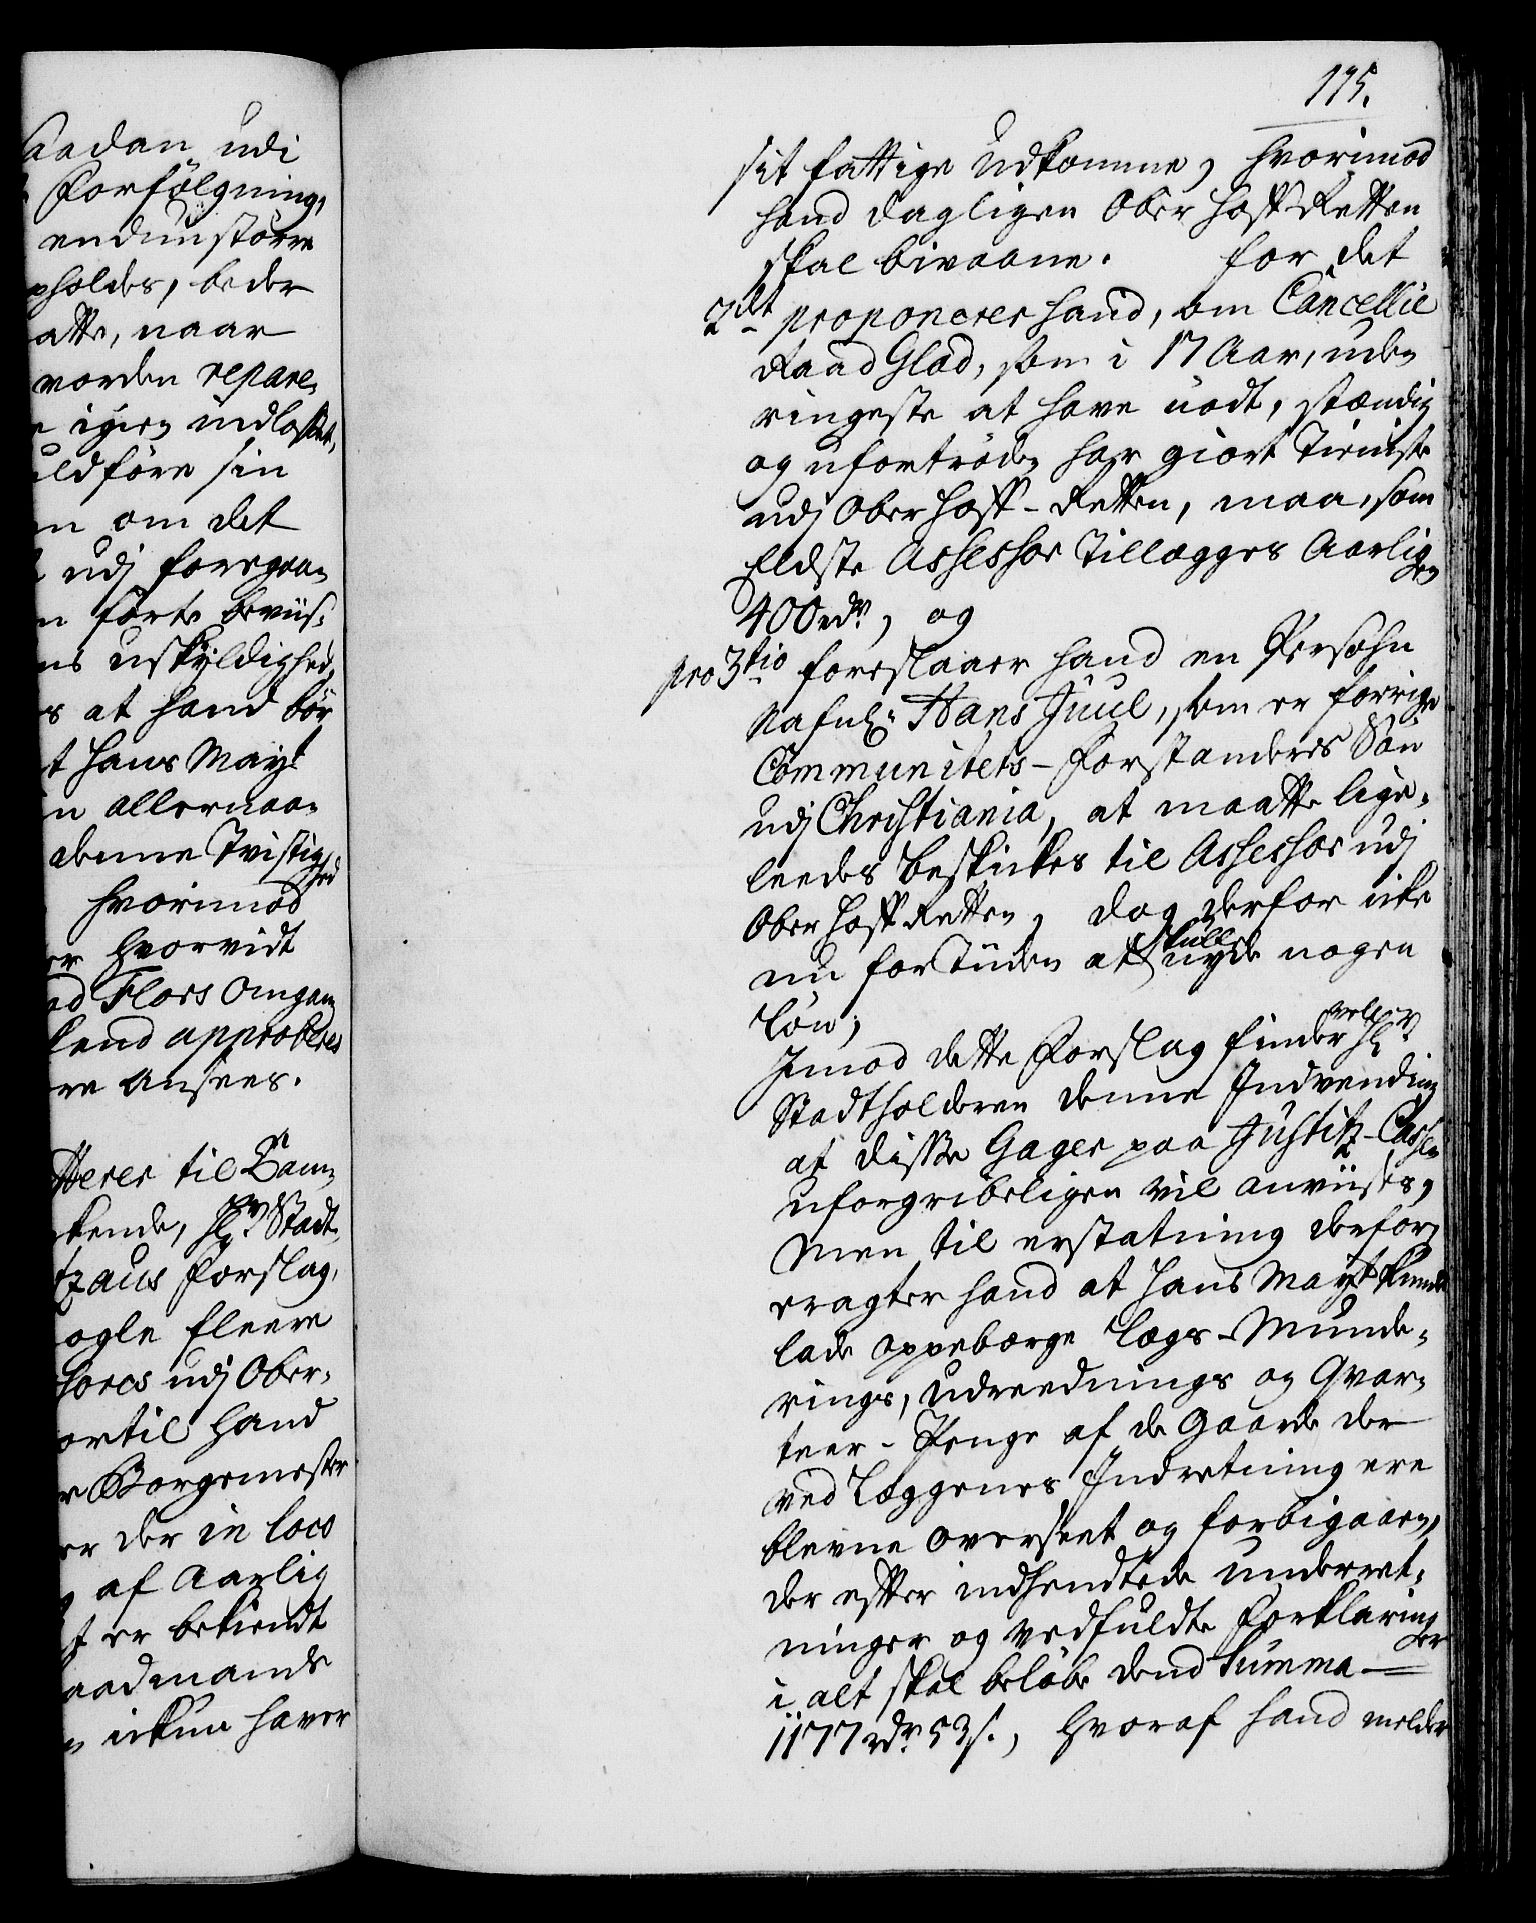 aadan udi
Forfölgning,
endnu större
pholdes, beder
atte, naar
vorden repare„
igien indlösset,
uldföre sin
n om det
udj foregaa„
n förte beviis„
ns uskÿldighed,
s at hand bör
t Hans Mayt
n allernaa„
denne Tvistig„
hed
hvorimod
er hvorvidt
ad Flors omgan
kand approberes
re ansees.
tterer til Cam„
kende, Hr Stadt„
tzaus Forslag,
ogle fleere
sores udj Ober„
ortil hand
r Borgemester
er der in loco
af Aarlig
t er bekiendt
aadmands
n ickun haver
175.
sit fattige Udkomme, hvorimod
hand dagligen Ober Hoff Retten
skal bivaane. For det
2det proponerer hand, om Cancellie
Raad Glad, som i 17 Aar, uden
ringeste at have nödt, stændig
og ufortröden har giort Tieniste
udj Ober Hoff-Retten, maa, som
Eldste Assessor Tillægges Aarlig
en
400 rdr, og
pro 3tio foreslaaer hand en Persohn
Nafnl. Hans Juul, som er forrige
Communitets-Forstanderes Sön
udj Christiania, at maatte lige„
leedes beskickes til Assessor udj
Ober Hoff Retten, dog derfor icke
nu for Tiiden at skulle nyde nogen
Lön;
Imod dette Forslag finder vel Hr
Stadtholderen denne Indvending
at disse Gager paa Justitz-Cassen
uforgribeligen vil anviises,
Men til erstatning derfor,
eragter hand at Hans Mayt kunde
lade oppebærge Lægs-Munde„
rings, Udreednings og Qvar„
teer-Penge af de Gaarde der
ved Læggenes Indretning ere
blevne overseet og forbigaaen,
der efter indhendtede underret„
ninger og vedfuldte Forklaring
er
i alt skal belöbe dend Summa
1177 rdr 53 s., hvoraf hand melder